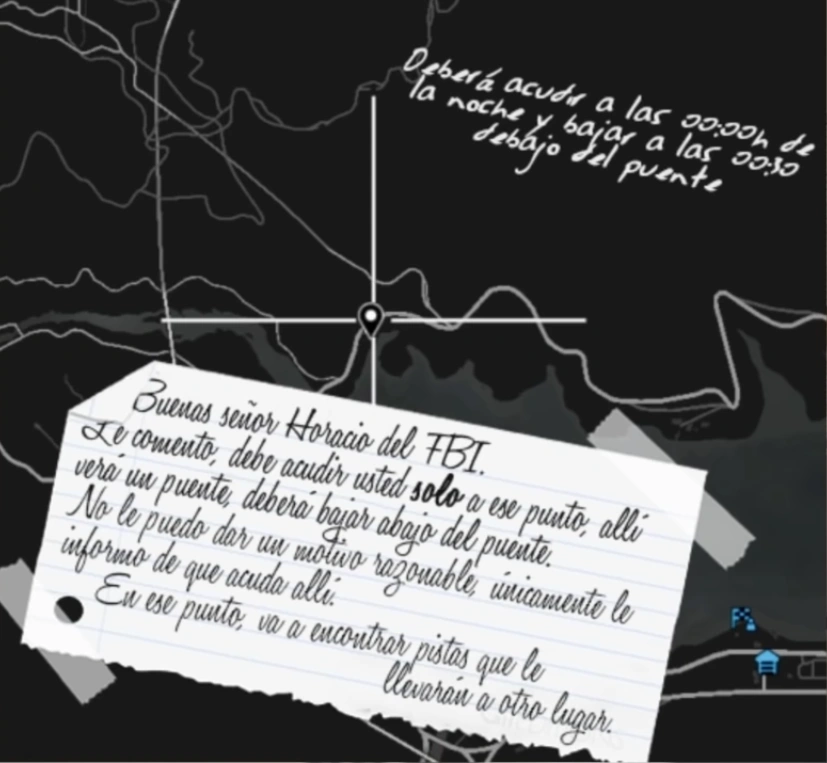 Deberá acudir a las 00:00h de
la noche y bajar a las 00:30
debajo del puente
Buenas señor Horacio del FBI.
Le comento, debe acudir usted solo a ese punto, allí
verá un puente, deberá bajar abajo del puente.
No le puedo dar un motivo razonable, únicamente le
informo de que acuda allí.
En ese punto, va a encontrar pistas que le
llevarán a otro lugar.